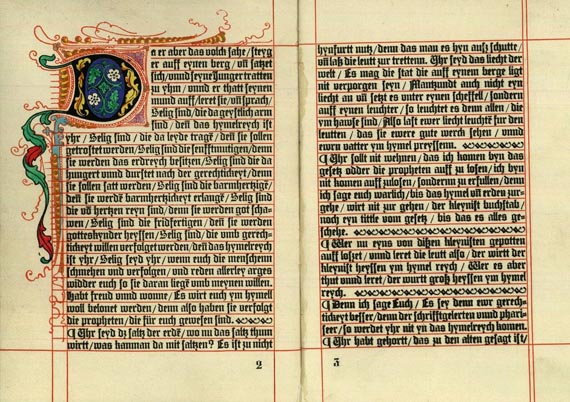 Da er aber das volck sahe/steyg
er auff eynen berg/uñ satzet
sich/unnd seyne Junger tratten
zu yhm/unnd er thatt seynen
mund auff/leret sie/uñ sprach/
Selig sind/die da geystlich arm
sind/deñ das hymelreych ist
yhr/Selig sind/die da leyde tragẽ/deñ sie sollen
getrostet werden/Selig sind die senfftmutigen/denn
sie werden das erdreych besitzen/Selig sind die da
hungert unnd durstet nach der gerechtickeyt/denn
sie sollen satt werden/Selig sind die barmhertzigẽ/
deñ sie werdẽ barmhertzickeyt erlangẽ/Selig sind
die võ hertzen reyn sind/denn sie werden got scha-
wen/Selig sind die fridfertigen/deñ sie werden
gottes kynder heyssen/Selig sind/die umb gerech-
tickeyt willen verfolget werden/deñ das hymelreych
ist yhr/Selig seyd yhr/wenn euch die menschenn
schmehen und verfolgen/und reden allerley arges
widder euch so sie daran liegẽ umb meynen willen.
Habt freud unnd wonne/Es wirt euch ym hymell
woll belonet werden/denn also haben sie verfolgt
die propheten/die fur euch gewesen sind.
¶ Yhr seyd dz saltz der erdẽ/wo nu das saltz thum
wirtt/was kannman da mit saltzen? Es ist zu nicht
2
hynfurtt nutz/denn das man es hyn ausz schutte/
uñ lasz die leutt zur trettenn. Yhr seyd das liecht der
welt/Es mag die stat die auff eynem berge ligt
nit verporgen seyn/Manzundt auch nicht eyn
liecht an uñ setzt es unter eynen scheffell/sondern
auff eynen leuchter/so leuchtet es denn allen/die
ym hawse sind/Also last ewer liecht leuchtẽ fur den
leutten/das sie ewere gute werch sehen/unnd
ewrn vatter ym hymel preyssenn.
¶ Yhr sollt nit wehnen/das ich komen byn das
gesetz odder die propheten auff zu losen/ich byn
nit komen auffzulosen/sondern zu erfullen/denn
ich sage euch warlich/bis das hymel uñ erden zur-
gehe/wirt nit zur gehen/der kleynist buchstab/
noch eyn tittle vom gesetz/bis das es alles ge-
schehe.
¶ Wer nu eyns von diszen kleynisten gepotten
auff loszet/unnd leret die leutt also/der wirtt der
kleynist heyssen ym hymel reych/Wer es aber
thut unnd leret/der wurtt grosz heyssen ym hymel
reych.
¶ Denn ich sage Euch/Es sey denn ewr gerech-
tickeyt besser/denn der schrifftgelerten unnd phari-
seer/so werdet yhr nit yn das hymelreych komen.
¶ Yhr habt gehortt/das zu den alten gesagt ist/
3